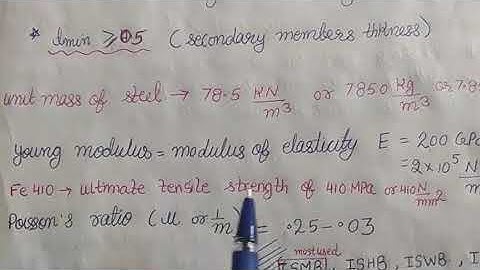 * tmin ≥ 05 (secondary members thikness)
unit mass of steel → 78.5 KN/m³ or 7850 kg/m³ or 7.8
young modulus = modulus of elasticity E = 200 GPa
= 2×10⁵ N/m
Fe 410 → ultimate tensile strength of 410 MPa or 410 N/mm²
Poisson's ratio (μ or 1/m) = .25-.03
most used
ISMB, ISHB, ISWB, I